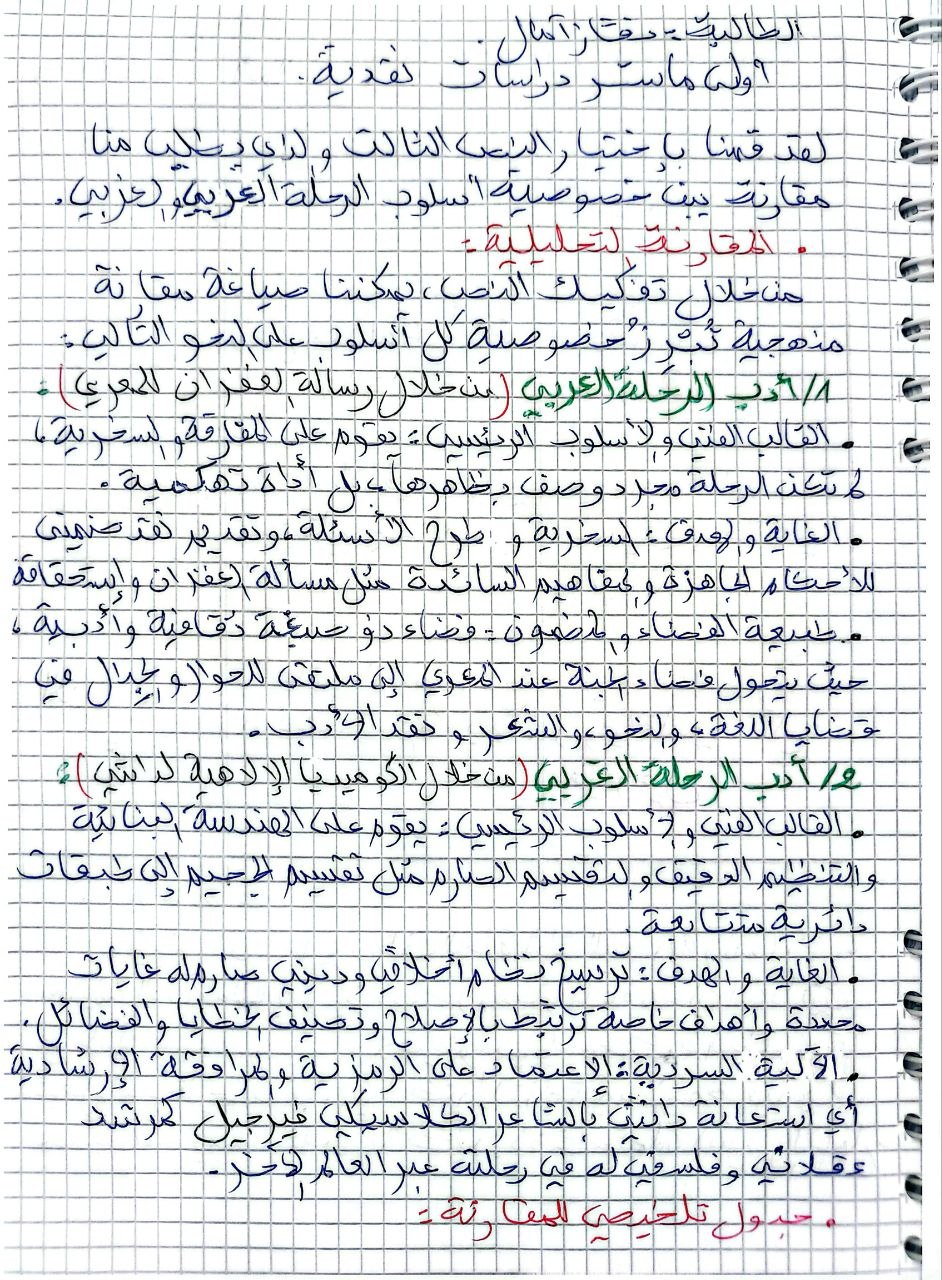 الطالبة: دقناز آمال.
أولى ماستر دراسات نقدية.
لقد قمنا بإختيار النص الثالث والذي يطلب منا
مقارنة بين خصوصية أسلوب الرحلة العربي والغربي.
• المقارنة التحليلية:
من خلال تفكيك النص، يمكننا صياغة مقارنة
منهجية تُبرز خصوصية كل أسلوب على النحو التالي:
1/ أدب الرحلة العربي (من خلال رسالة الغفران للمعري):
• القالب الفني والأسلوب الرئيسي: يقوم على المفارقة والسخرية،
لم تكن الرحلة مجرد وصف بظاهرها، بل أداة تهكمية.
• الغاية والهدف: السخرية و طرح الأسئلة، وتقديم نقد ضمني
للأحكام الجاهزة والمفاهيم السائدة مثل مسألة الغفران وإستحقاقه
• طبيعة الفضاء والمضمون: فضاء ذو صبغة ثقافية وأدبية،
حيث يتحول فضاء الجنة عند المعري إلى ملتقى للحوار والجدال في
قضايا اللغة، والنحو، والشعر و نقد الأدب.
2/ أدب الرحلة الغربي (من خلال الكوميديا الإلاهية لدانتي):
• القالب الفني والأسلوب الرئيسي: يقوم على الهندسة البنائية
والتنظيم الدقيق والتقسيم الصارم مثل تقسيم الجحيم إلى طبقات
دائرية متتابعة.
• الغاية والهدف: ترسيخ نظام أخلاقي وديني صارم له غايات
محددة وأهداف خاصة ترتبط بالإصلاح وتصنيف الخطايا والفضائل.
• الآلية السردية: الاعتماد على الرمزية والمرافقة الإرشادية
أي استعانة دانتي بالشاعر الكلاسيكي فيرجيل كمرشد
عقلاني وفلسفي له في رحلته عبر العالم الآخر.
• جدول تلخيصي للمقارنة: